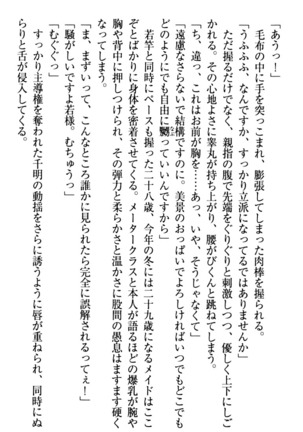 「あうっ！」
毛布の中に手を突っこまれ、膨張してしまった肉棒を握られる。
「うふふふ、なんですか、すっかり立派になってるではありませんか」
ただ握るだけでなく、親指の腹で先端をぐりぐりと刺激しつつ、優しく上下にしご
かれる。その心地よさに睾丸が持ち上がり、腰がびくんと跳ねてしまう。
「ち、違っ、これはお前が胸を……あっ、いや、そうじゃなくて」
「遠慮なさらないで結構ですのに。美景のおっぱいでよろしければ、いつでもどこでも
どのようにでも自由に嬲っていいんですから」
若竿と同時にペースも握った二十八歳、今年の冬には二十九歳になるメイドはここ
ぞとばかりに身体を密着させてくる。メータークラスと本人が語るほどの爆乳が腕や
胸や背中に押しつけられ、その弾力と柔らかさと温かさに股間の愚息はますます硬く
なってしまう。
「ま、まずいって、こんなところ誰かに見られたら完全に誤解されるってぇ！」
「騒がしいですよ若様。むちゅうっ」
「むぐぐっ」
すっかり主導権を奪われた千明の動揺をさらに誘うように唇が重ねられ、同時にぬ
らりと舌が侵入してくる。